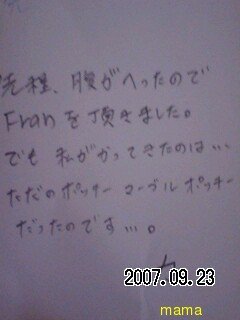 先程、腹がへったので
Franを頂きました。
でも 私がかってきたのは…
ただのポッキー マーブルポッキー
だったのです…。
2007.09.23
mama